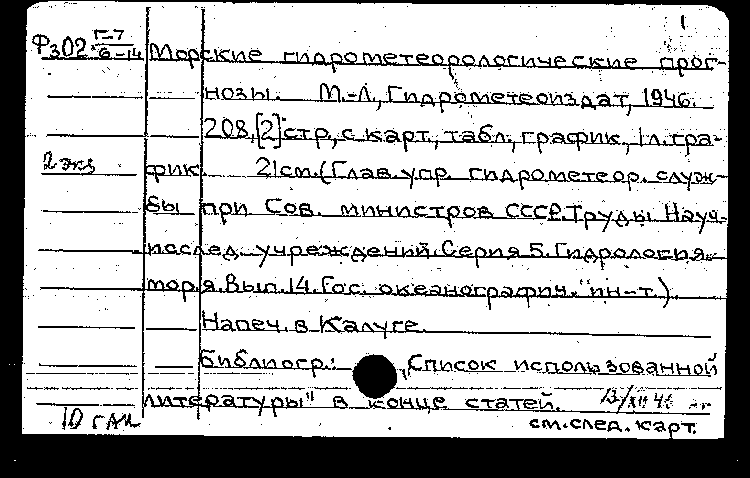 1
Фз02 Г-7
6-14
Морские гидрометеорологические прог-
нозы. М.-Л., Гидрометеоиздат, 1946.
208,[2] стр., с карт., табл., график., 1 л. гра-
2 экз фик. 21см. (Глав. упр. гидрометеор. служ-
бы при Сов. министров СССР. Труды Науч.-
послед. учреждений. Серия 5. Гидрология
моря. Вып. 14. Гос. океанографич. ин-т.).
Напеч. в Калуге.
Библиогр.: „Список использованной
литературы" в конце статей. 13/XII 46
10 гли
см. след. карт.